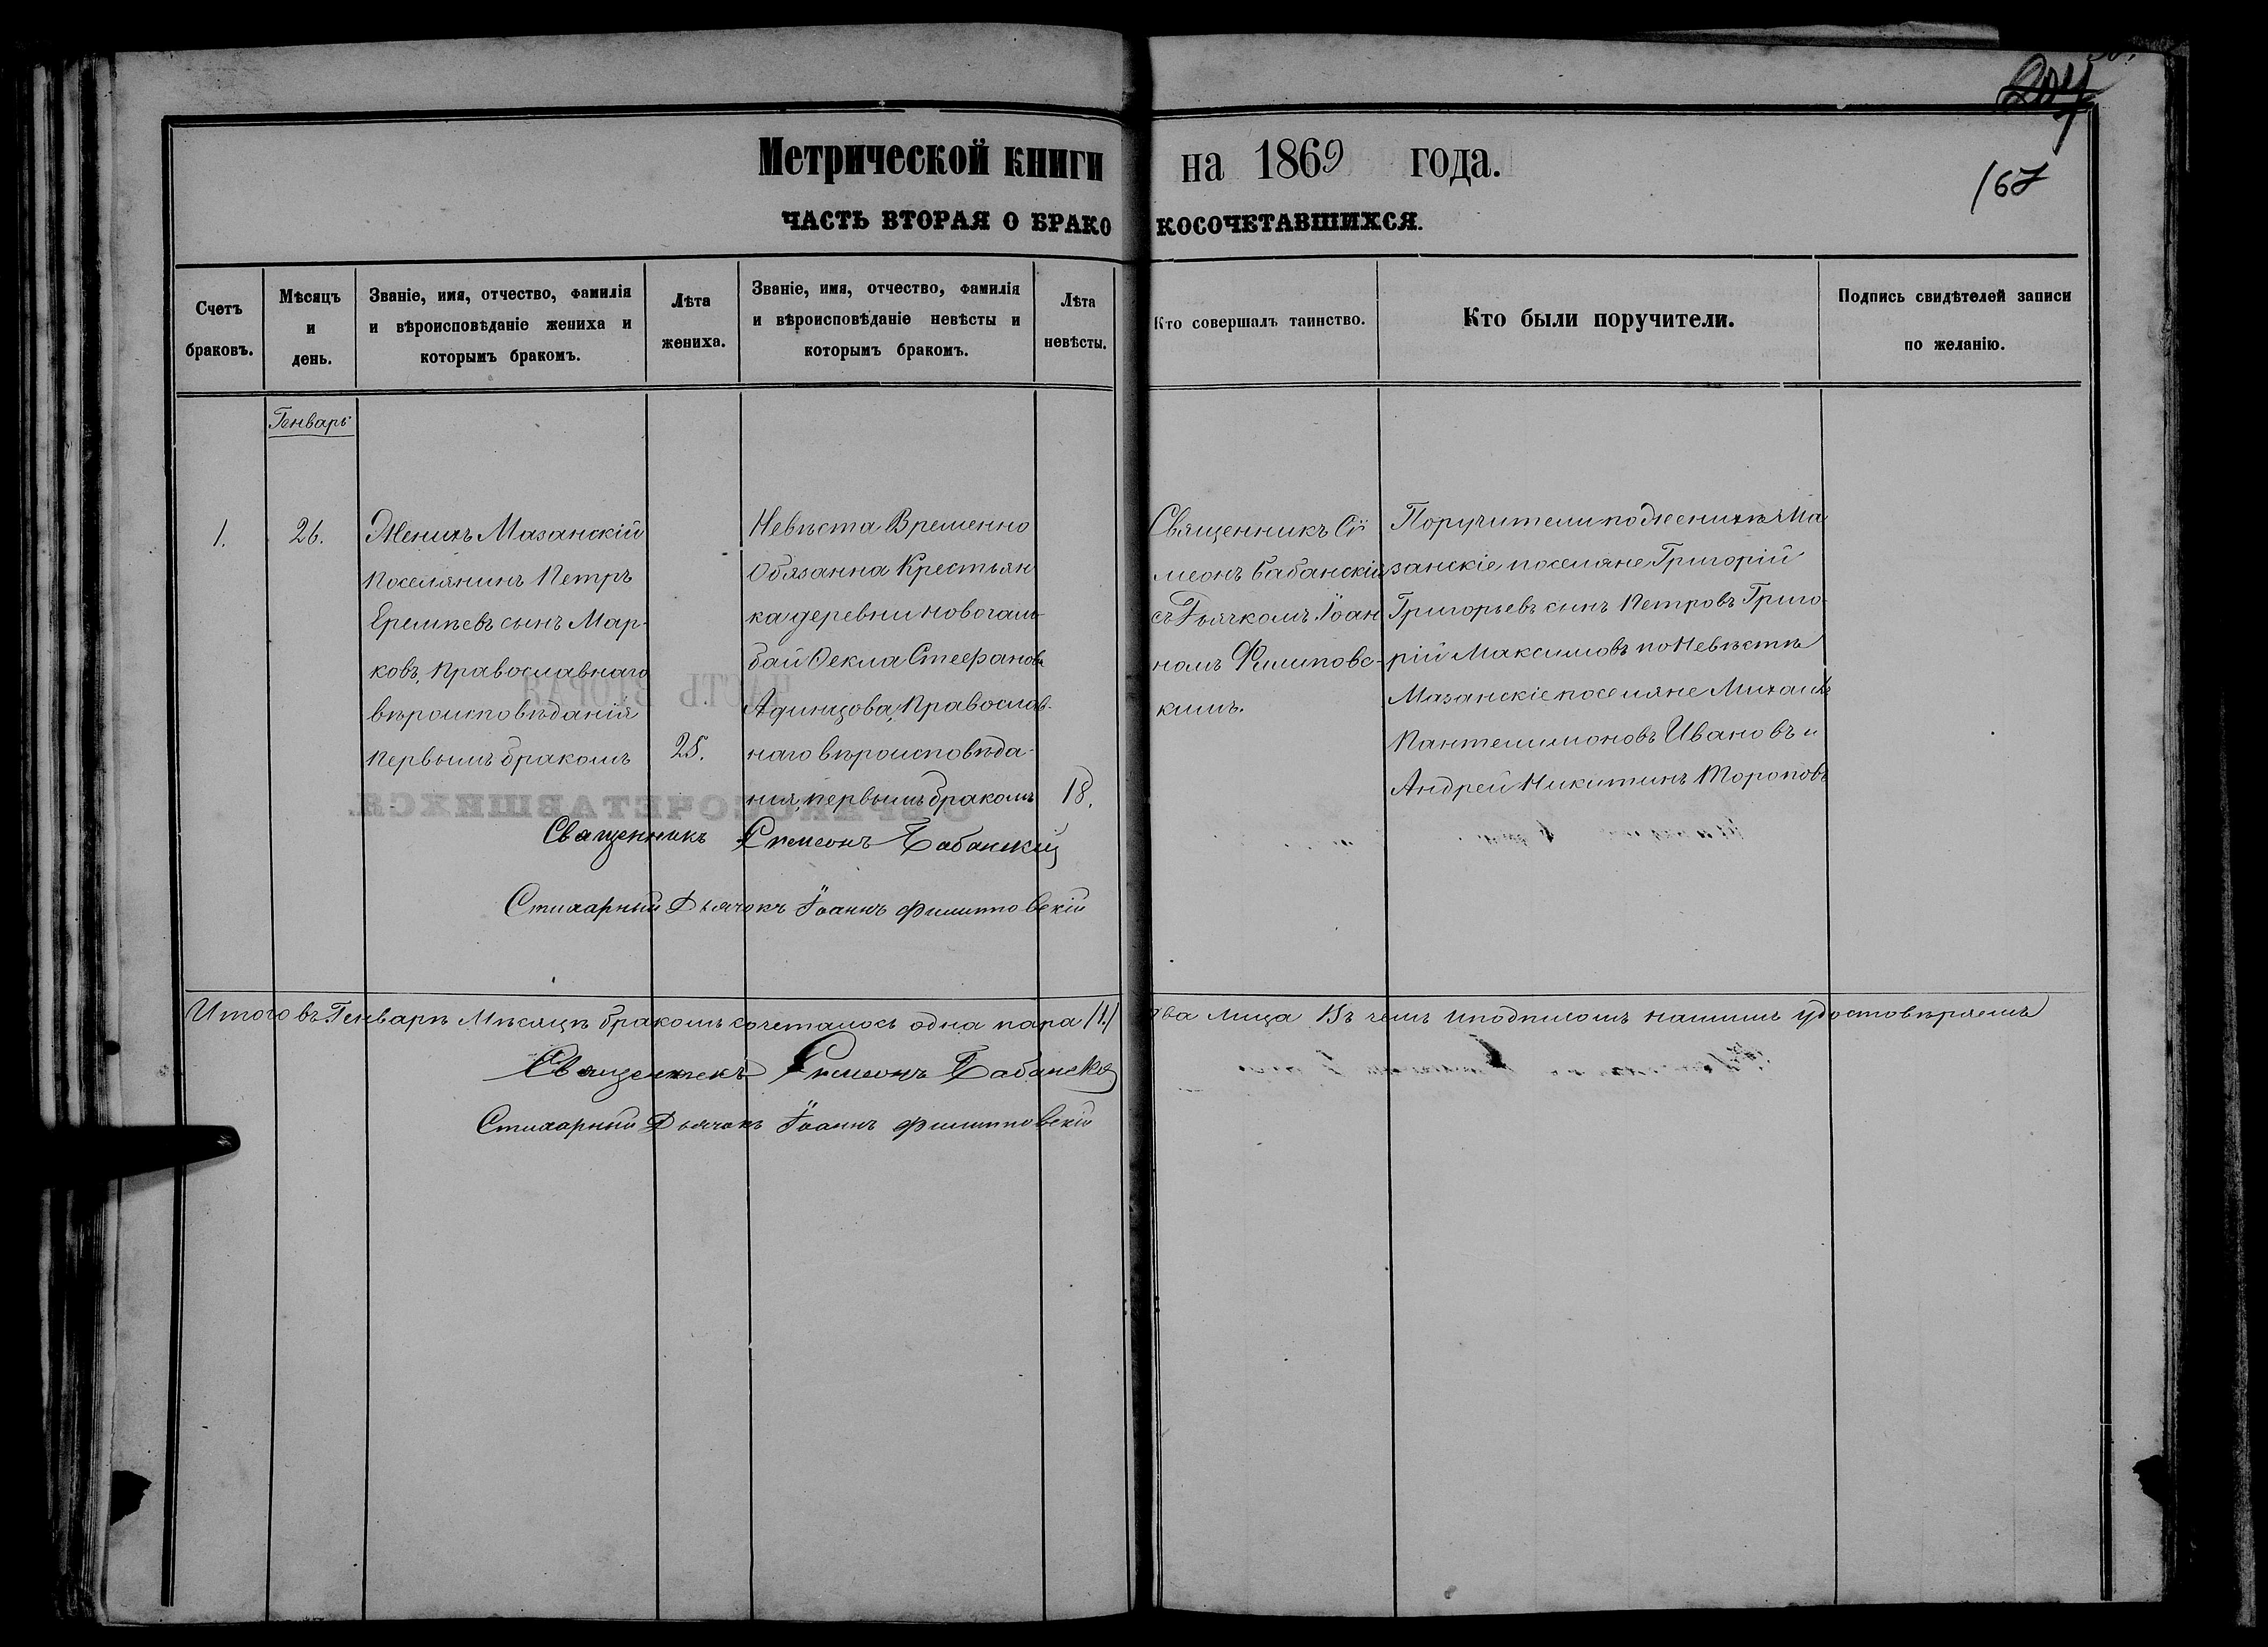 Метрической книги на 1869 года.
167
ЧАСТЬ ВТОРАЯ О БРАКОКОСОЧЕТАВШИХСЯ.
Счетъ
браковъ.
Мѣсяцъ
и
день.
Званіе, имя, отчество, фамилія
и вѣроисповѣданіе жениха и
которымъ бракомъ.
Лѣта
жениха.
Званіе, имя, отчество, фамилія
и вѣроисповѣданіе невѣсты и
которымъ бракомъ.
Лѣта
невѣсты.
Кто совершалъ таинство.
Кто были поручители.
Подпись свидѣтелей записи
по желанію.
Генварь
1.
26.
Женихъ Мазанскій
Поселянинъ Петръ
Еремѣевъ сынъ Мар-
ковъ, Православнаго
вѣроисповѣданія
первымъ бракомъ
25.
Невѣста Временно
Обязанна Крестьян
ка деревни
бай Ѳекла Стефанова
Адинцова, Православ-
наго вѣроисповѣда-
нія, первымъ бракомъ
18.
Священникъ Сѵ
меонъ Бабанскій
съ Дьячкомъ Іоан
номъ Филиповс-
кимъ.
Поручители по женихѣ Ма
занскіе поселяне Григорій
Григорьевъ сынъ Петровъ Григо-
рій Максимовъ по Невѣстѣ
Мазанскіе поселяне Михаилъ
Пантелимоновъ Ивановъ и
Андрей Никитинъ Тороповъ
Священникъ Симеонъ Бабанский
Стихарный Дьячокъ Іоаннъ Филипповскій
Итого въ Генварѣ Мѣсяцѣ бракомъ сочеталось одна пара /1./ два лица Въ чемъ и подписомъ нашимъ удостовѣряемъ
Священникъ Симеонъ Бабанской
Стихарный Дьячокъ Іоаннъ Филипповскій